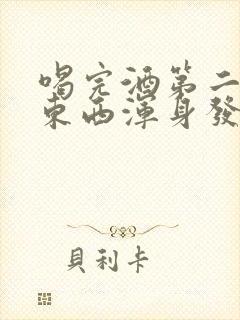 喝完酒第二
東西渾身發
貝利卡